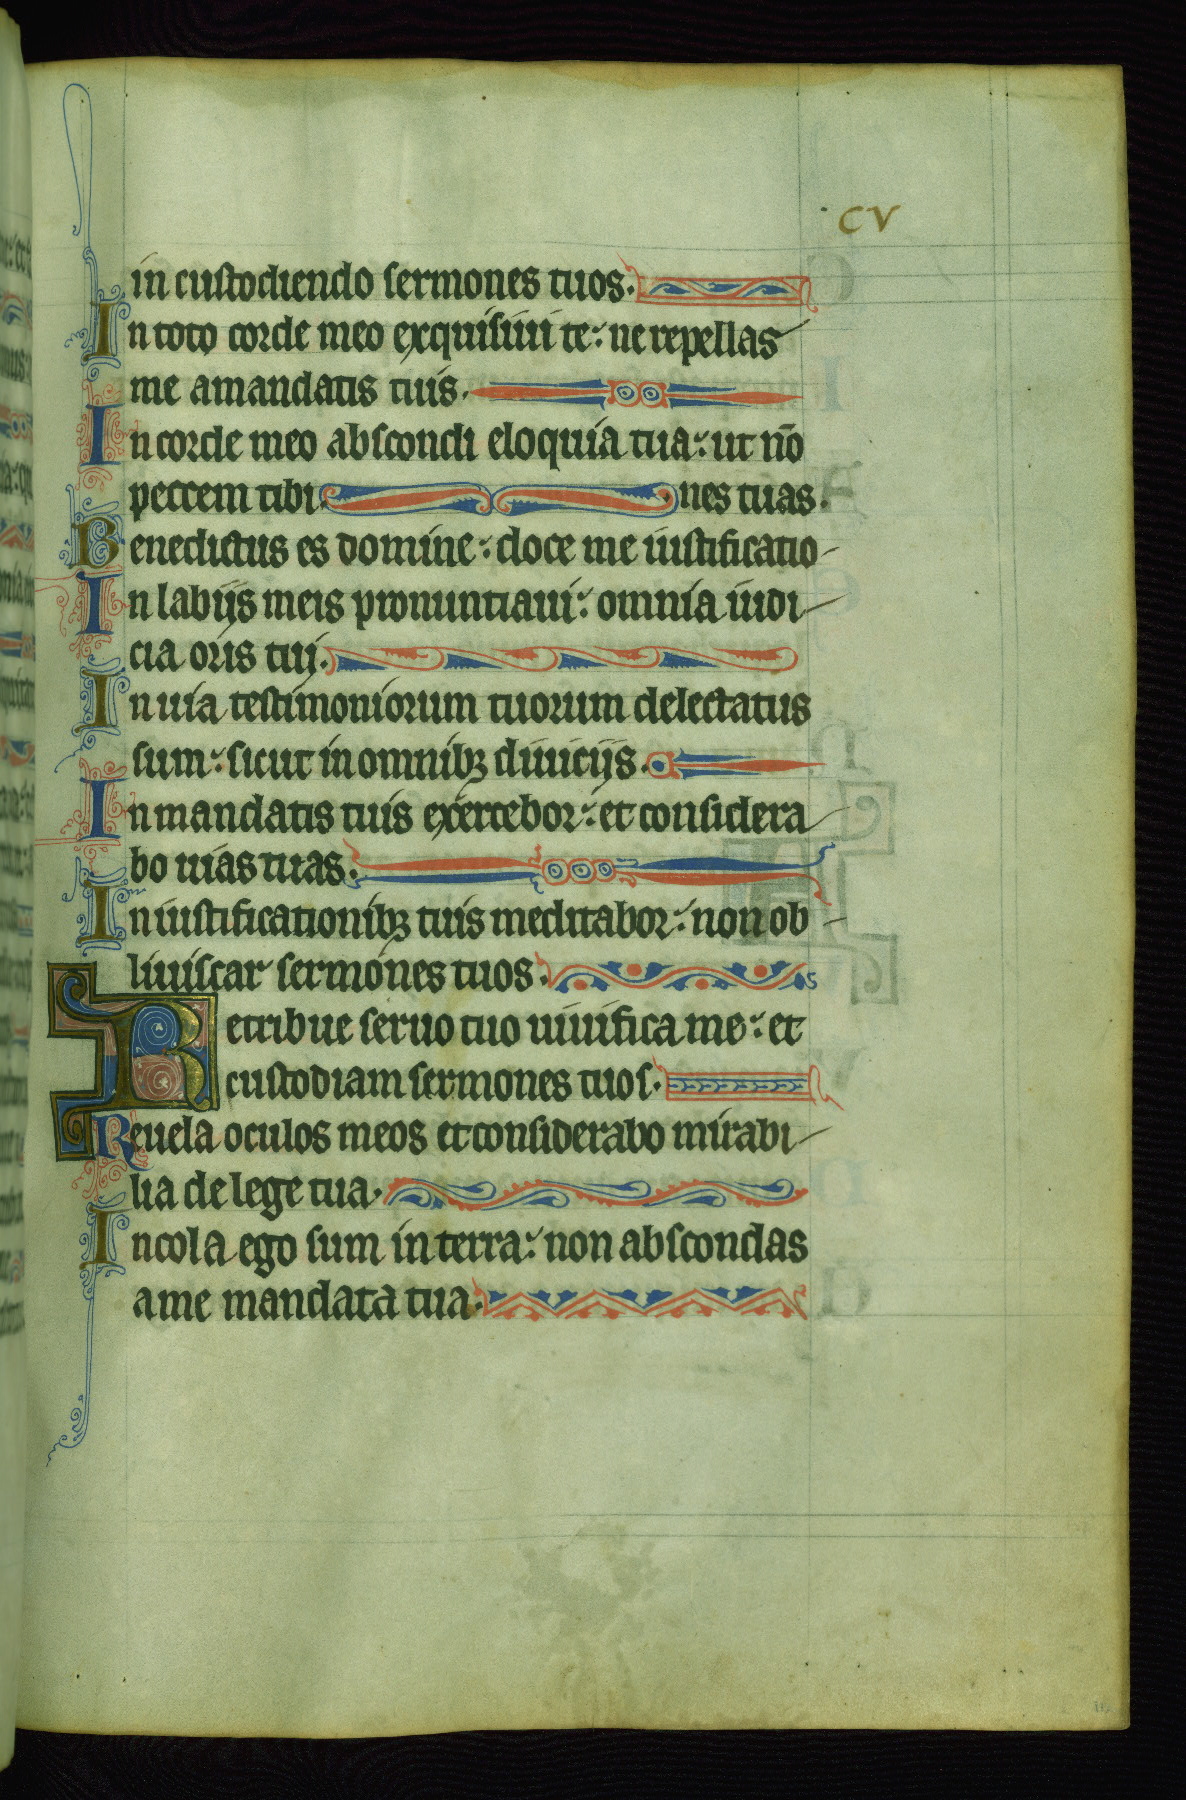 CV
in custodiendo sermones tuos.
In toto corde meo exquisiui te: ne repellas
me amandatis tuis.
In corde meo abscondi eloquia tua: ut nō
peccem tibi. nes tuas.
Benedictus es domine: doce me iustificatio
In labijs meis pronuntiaui: omnia iudi
cia oris tui.
In uia testimoniorum tuorum delectatus
sum: sicut in omnibꝫ diuicijs.
In mandatis tuis exercebor: et considera
bo uias tuas.
In iustificationibꝫ tuis meditabor: non ob
liuiscar sermones tuos.
Retribue seruo tuo uiuifica me: et
custodiam sermones tuos.
Reuela oculos meos et considerabo mirabi
lia de lege tua.
Incola ego sum in terra: non abscondas
ame mandata tua.